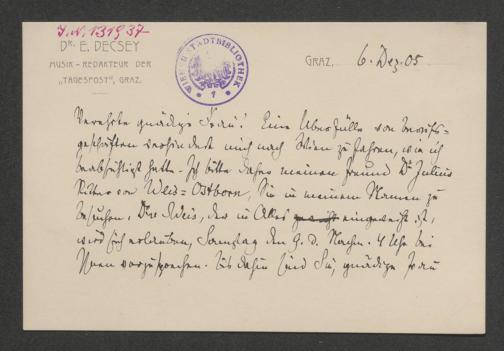 J.N. 131937
Dr. E. DECSEY
MUSIK-REDAKTEUR DER
„TAGESPOST“, GRAZ.
WIENER STADTBIBLIOTHEK
* 1 *
GRAZ, 6. Dez. 05
Verehrte gnädige Frau! Eine Überfülle von Berufs=
geschäften verhindert mich nach Wien zu fahren, wie ich
beabsichtigt hatte. Ich bitte daher meinen Freund Dr Julius
Ritter von Weis=Ostborn, Sie in meinem Namen zu
besuchen. Dr Weis, der in Alles eingeweiht ist,
wird sich erlauben, Samstag den 9. d. Nachm. 4 Uhr bei
Ihnen vorzusprechen. Bis dahin sind Sie, gnädige Frau